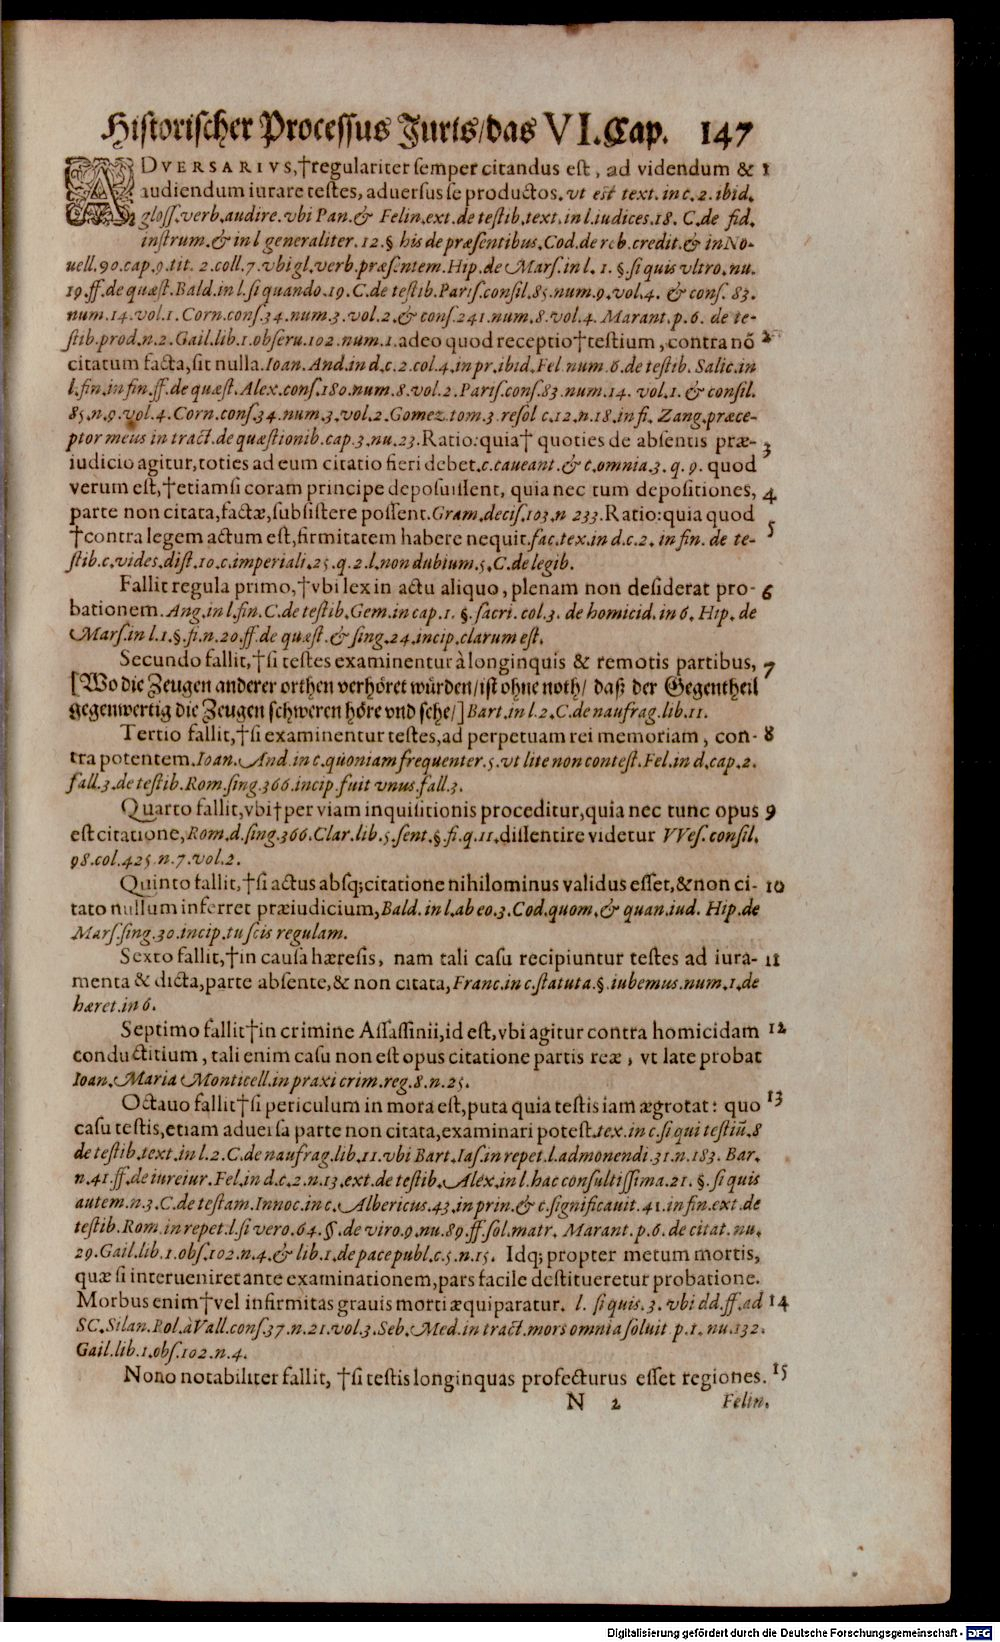 Historischer Processus Juris/das VI.Cap. 147
ADVERSARIVS,†regulariter semper citandus est, ad videndum & 1
audiendum iurare testes, adversus se productos. vt est text. in c. 2. ibid.
gloss. verb. audire. vbi Pan. & Felin. ext. de testib. text. in l. iudices. 18. C. de fid.
instrum. & in l generaliter. 12. § his de præsentibus. Cod. de reb. credit. & in No-
uell. 90. cap. 9. tit. 2. coll. 7. vbi gl. verb. præsentem. Hip. de Mars. in l. 1. §. si quis vltro. nu.
19. ff. de quæst. Bald. in l. si quando. 19. C. de testib. Paris. consil. 85. num. 9. vol. 4. & cons. 83.
num. 14. vol. 1. Corn. cons. 34. num. 3. vol. 2. & cons. 241. num. 8. vol. 4. Marant. p. 6. de te-
stib. prod. n. 2. Gail. lib. 1. obseru. 102. num. 1. adeo quod receptio†testium, contra nō 2
citatum facta, sit nulla. Ioan. And. in d. c. 2. col. 4. in pr. ibid. Fel. num. 6. de testib. Salic. in
l. fin. in fin. ff. de quæst. Alex. cons. 180. num. 8. vol. 2. Paris. cons. 83. num. 14. vol. 1. & consil.
85. n. 9. vol. 4. Corn. cons. 34. num. 3. vol. 2. Gomez. tom. 3. resol c. 12. n. 18. in fi. Zang. præce-
ptor meus in tract. de quæstionib. cap. 3. nu. 23. Ratio: quia† quoties de absentis præ- 3
iudicio agitur, toties ad eum citatio fieri debet. c. caueant. & c. omnia. 3. q. 9. quod
verum est, †etiamsi coram principe deposuissent, quia nec tum depositiones, 4
parte non citata, factæ, subsistere possent. Gram. decis. 103. n 233. Ratio: quia quod 5
†contra legem actum est, firmitatem habere nequit. fac. tex. in d. c. 2. in fin. de te-
stib. c. vides. dist. 10. c. imperiali. 25. q. 2. l. non dubium. 5. C. de legib.
Fallit regula primo, †vbi lex in actu aliquo, plenam non desiderat pro- 6
bationem. Ang. in l. fin. C. de testib. Gem. in cap. 1. §. sacri. col. 3. de homicid. in 6. Hip. de
Mars. in l. 1. §. fi. n. 20. ff. de quæst. & sing. 24. incip. clarum est.
Secundo fallit, †si testes examinentur à longinquis & remotis partibus, 7
[Wo die Zeugen anderer orthen verhöret würden/ ist ohne noth/ daß der Gegentheil
gegenwertig die Zeugen schweren höre vnd sehe/] Bart. in l. 2. C. de naufrag. lib. 11.
Tertio fallit, †si examinentur testes, ad perpetuam rei memoriam, con- 8
tra potentem. Ioan. And. in c. quoniam frequenter. 5. vt lite non contest. Fel. in d. cap. 2.
fall. 3. de testib. Rom. sing. 366. incip. fuit vnus. fall. 3.
Quarto fallit, vbi†per viam inquisitionis proceditur, quia nec tunc opus 9
est citatione, Rom. d. sing. 366. Clar. lib. 5. sent. §. fi. q. 11. dissentire videtur VVes. consil.
98. col. 425. n. 7. vol. 2.
Quinto fallit, †si actus absq; citatione nihilominus validus esset, & non ci- 10
tato nullum inferret præiudicium, Bald. in l. ab eo. 3. Cod. quom. & quan. iud. Hip. de
Mars. sing. 30. incip. tu scis regulam.
Sexto fallit, †in causa hæresis, nam tali casu recipiuntur testes ad iura- 11
menta & dicta, parte absente, & non citata, Franc. in c. statuta. §. iubemus. num. 1. de
hæret. in 6.
Septimo fallit†in crimine Assassinii, id est, vbi agitur contra homicidam 12
conductitium, tali enim casu non est opus citatione partis reæ, vt late probat
Ioan. Maria Monticell. in praxi crim. reg. 8. n. 25.
Octauo fallit†si periculum in mora est, puta quia testis iam ægrotat: quo 13
casu testis, etiam aduersa parte non citata, examinari potest. tex. in c. si qui testiū. 8
de testib. text. in l. 2. C. de naufrag. lib. 11. vbi Bart. Ias. in repet. l. admonendi. 31. n. 183. Bar.
n. 41. ff. de iureiur. Fel. in d. c. 2. n. 13. ext. de testib. Alex. in l. hac consultissima. 21. §. si quis
autem. n. 3. C. de testam. Innoc. in c. Albericus. 43. in prin. & c. significauit. 41. in fin. ext. de
testib. Rom. in repet. l. si vero. 64. §. de viro. 9. nu. 89. ff. sol. matr. Marant. p. 6. de citat. nu.
29. Gail. lib. 1. obs. 102. n. 4. & lib. 1. de pace publ. c. 5. n. 15. Idq; propter metum mortis,
quæ si interueniret ante examinationem, pars facile destitueretur probatione.
Morbus enim†vel infirmitas grauis morti æquiparatur. l. si quis. 3. vbi dd. ff. ad 14
SC. Silan. Rol. à Vall. cons. 37. n. 21. vol. 3. Seb. Med. in tract. mors omnia soluit p. 1. nu. 132.
Gail. lib. 1. obs. 102. n. 4.
Nono notabiliter fallit, †si testis longinquas profecturus esset regiones. 15
N 2 Felin.
Digitalisierung gefördert durch die Deutsche Forschungsgemeinschaft - DFG